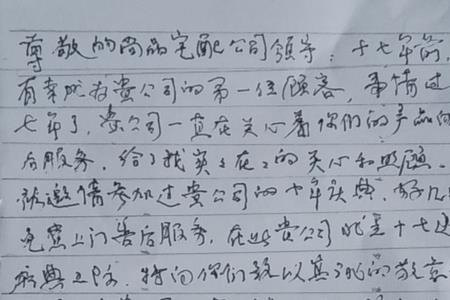 尊敬的尚品宅配公司领导：十七年前，
有幸成为贵公司的第一位顾客，事情过
七年了，贵公司一直在关心着你们的产品的
后服务，给了我实实在在的关心和照顾。
被邀请参加过贵公司的十年庆典，好几
免费上门售后服务，在此贵公司 十七
庆典之际，特向你们致以真诚的祝